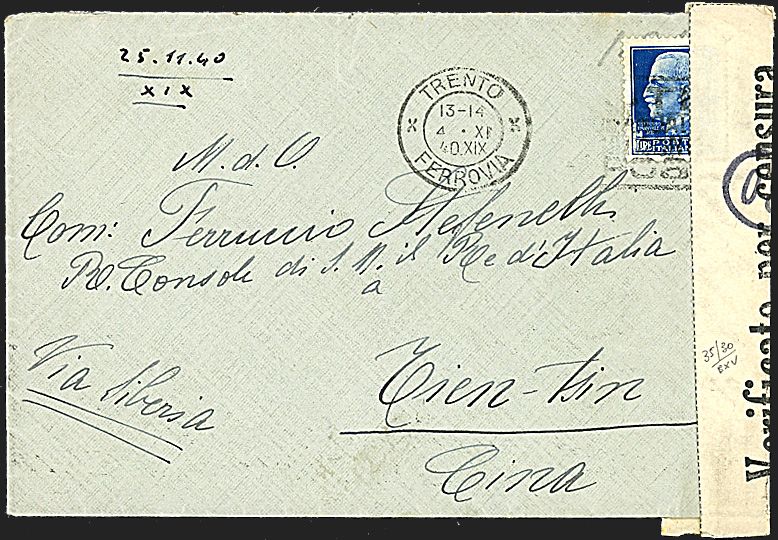 25.11.40
XIX
TRENTO
13-14
4 . XI
40 XIX
FERROVIA
LIRE POSTE
ITALIANE
M. d. O.
Com: Ferruccio Stefenelli
R. Console di S. M. il Re d'Italia
a
Via Siberia
Tien-Tsin
Cina
Verificato per censura
35/30
EXV